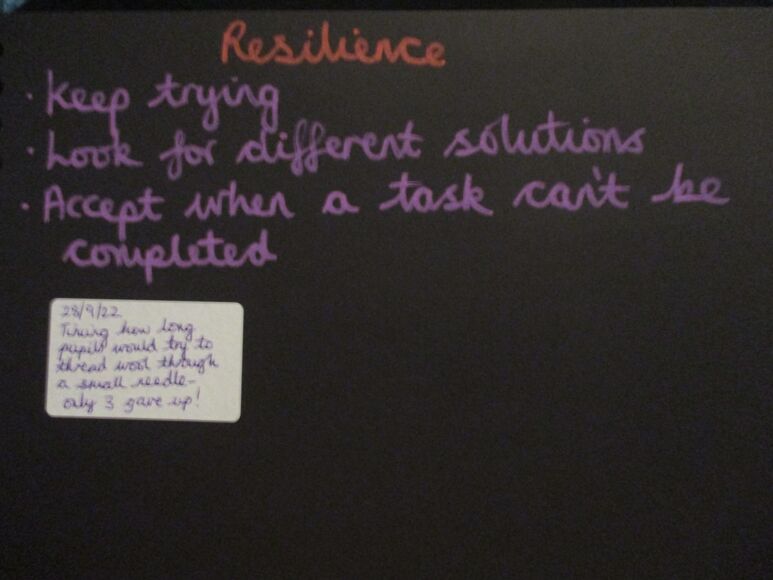 Resilience
· Keep trying
· Look for different solutions
· Accept when a task can't be
completed
28/9/22
Timing how long
pupils would try to
thread wool through
a small needle-
only 3 gave up!